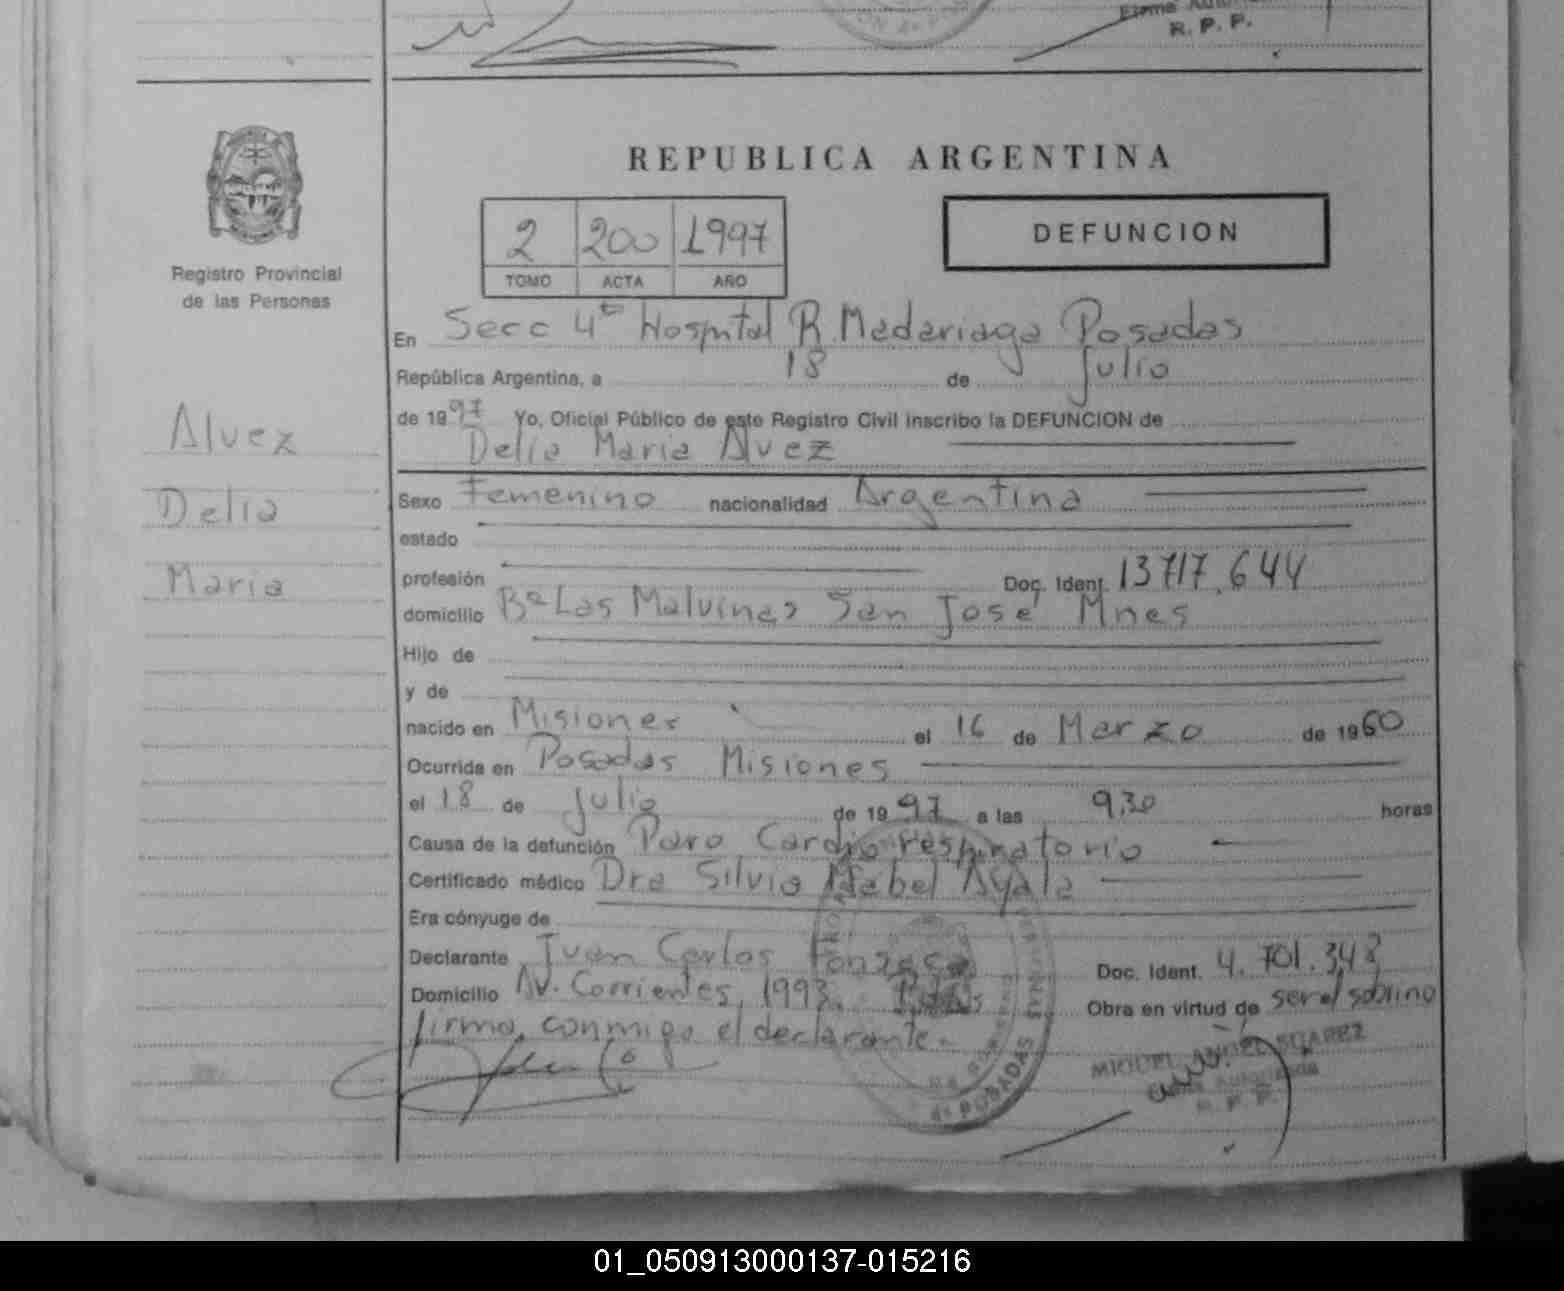 Firma Autorizada
R. P. P.
REPUBLICA ARGENTINA
2 200 1997
TOMO ACTA AÑO
DEFUNCION
Registro Provincial
de las Personas
Alvez
Delia
Maria
En Secc 4ta Hospital R. Madariaga Posadas
República Argentina, a 18 de julio
de 1997 Yo, Oficial Público de este Registro Civil inscribo la DEFUNCION de
Delia Maria Alvez
Sexo Femenino nacionalidad Argentina
estado
profesión Doc. Ident. 13717.644
domicilio Bº Las Malvinas San José Mnes
Hijo de
y de
nacido en Misiones el 16 de Marzo de 1960
Ocurrida en Posadas Misiones
el 18 de julio de 1997 a las 9,30 horas
Causa de la defunción Paro Cardio respiratorio
Certificado médico Dra Silvia Mabel Ayala
Era cónyuge de
Declarante Juan Carlos Fonseca Doc. Ident. 4.701.348
Domicilio Av. Corrientes, 1993. Obra en virtud de ser el sobrino
firma, conmigo el declarante.
MIGUEL ANGEL SUAREZ
Firma Autorizada
R. P. P.
de POSADAS
01_050913000137-015216